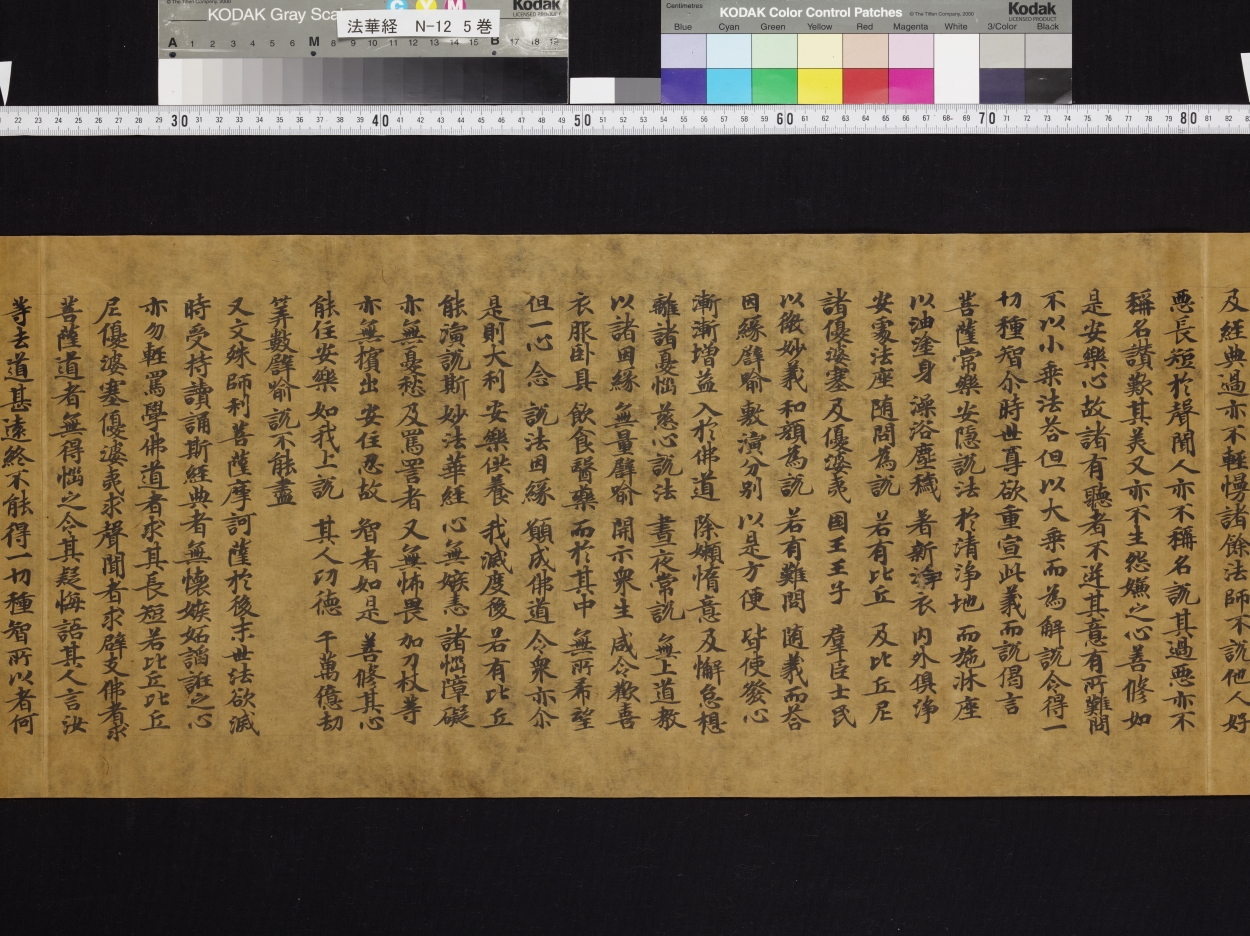 © The Tiffen Company, 2000
KODAK Gray Scale
C Y M
Kodak
LICENSED PRODUCT
法華経 N-12 5巻
A 1 2 3 4 5 6 M 8 9 10 11 12 13 14 15 B 17 18 19
Centimetres
KODAK Color Control Patches
© The Tiffen Company, 2000
Kodak
LICENSED PRODUCT
Blue Cyan Green Yellow Red Magenta White 3/Color Black
22 23 24 25 26 27 28 29 30 31 32 33 34 35 36 37 38 39 40 41 42 43 44 45 46 47 48 49 50 51 52 53 54 55 56 57 58 59 60 61 62 63 64 65 66 67 68 69 70 71 72 73 74 75 76 77 78 79 80 81 82
及經典過亦不輕慢諸餘法師不說他人好
惡長短於聲聞人亦不稱名說其過惡亦不
稱名讚歎其美又亦不生怨嫌之心善修如
是安樂心故諸有聽者不逆其意有所難問
不以小乘法答但以大乘而為解說令得一
切種智尒時世尊欲重宣此義而說偈言
菩薩常樂 安隱說法 於清淨地 而施牀座
以油塗身 澡浴塵穢 著新淨衣 內外俱淨
安處法座 随問為說 若有比丘 及比丘尼
諸優婆塞 及優婆夷 國王王子 羣臣士民
以微妙義 和顏為說 若有難問 随義而答
因緣譬喻 敷演分別 以是方便 皆使發心
漸漸增益 入於佛道 除嬾惰意 及懈怠想
離諸憂惱 慈心說法 晝夜常說 無上道教
以諸因緣 無量譬喻 開示衆生 咸令歡喜
衣服卧具 飲食醫藥 而於其中 無所希望
但一心念 說法因緣 願成佛道 令衆亦尒
是則大利 安樂供養 我滅度後 若有比丘
能演說斯 妙法華經 心無嫉恚 諸惱障礙
亦無憂愁 及罵詈者 又無怖畏 加刀杖等
亦無擯出 安住忍故 智者如是 善修其心
能住安樂 如我上說 其人功德 千萬億劫
筭數譬喻 說不能盡
又文殊師利菩薩摩訶薩於後末世法欲滅
時受持讀誦斯經典者無懷嫉妬諂誑之心
亦勿輕罵學佛道者求其長短若比丘比丘
尼優婆塞優婆夷求聲聞者求辟支佛者求
菩薩道者無得惱之令其疑悔語其人言汝
等去道甚遠終不能得一切種智所以者何